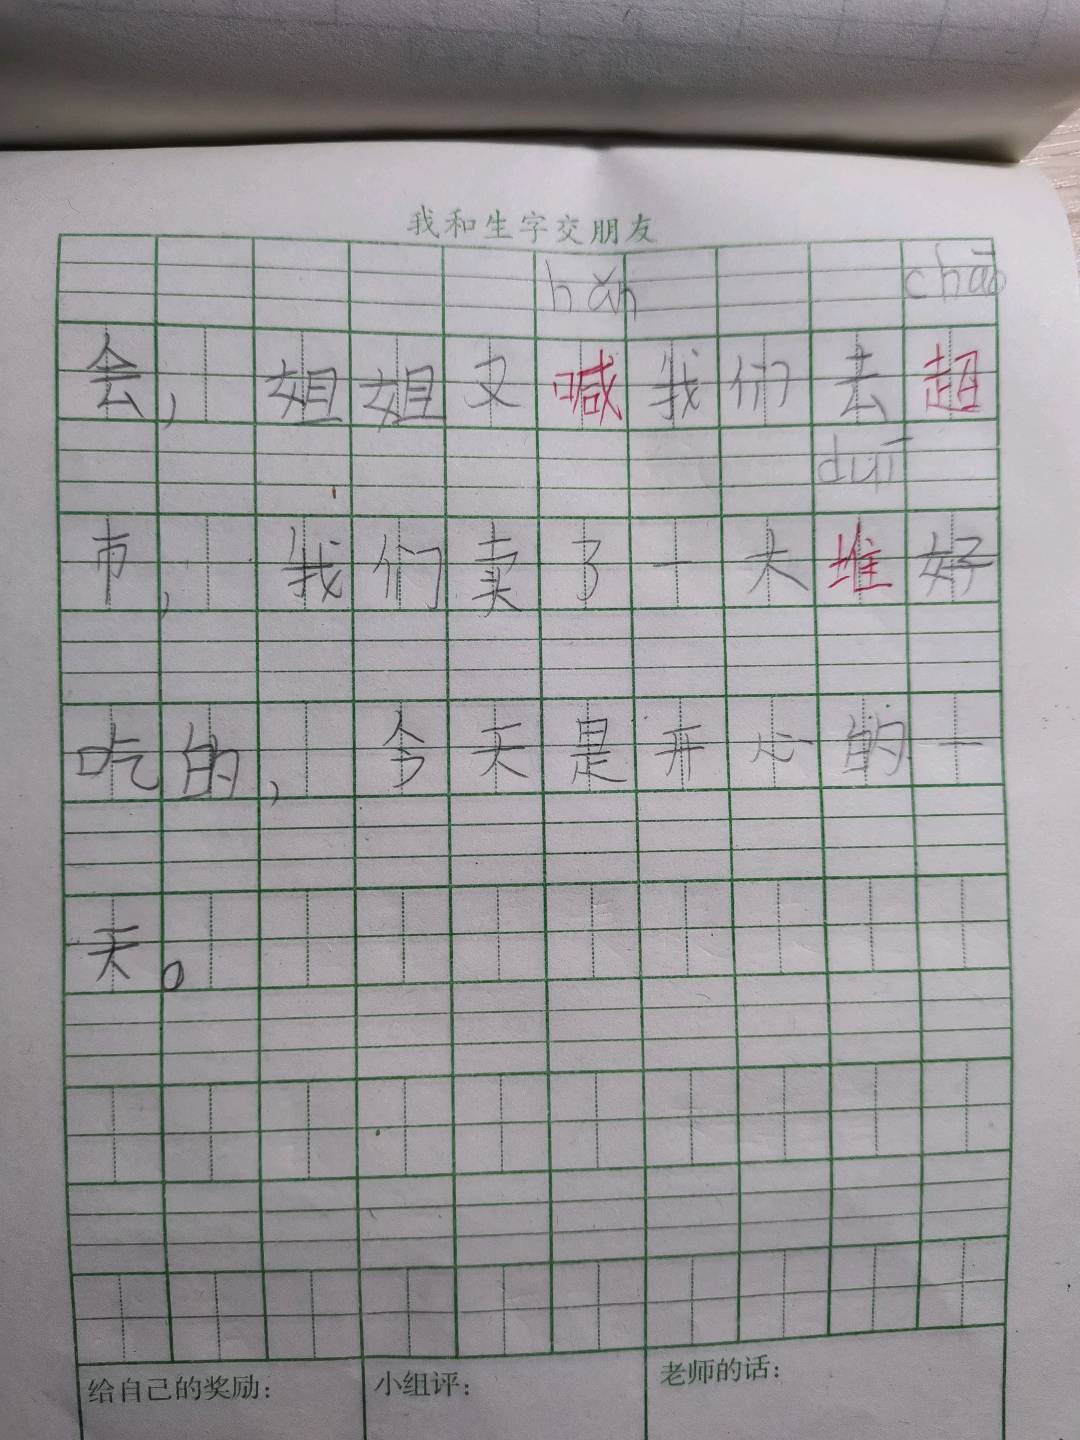 我和生字交朋友
hǎn chāo
会，姐姐又喊我们去超
duī
市，我们卖了一大堆好
吃的，今天是开心的一
天。
给自己的奖励： 小组评： 老师的话：